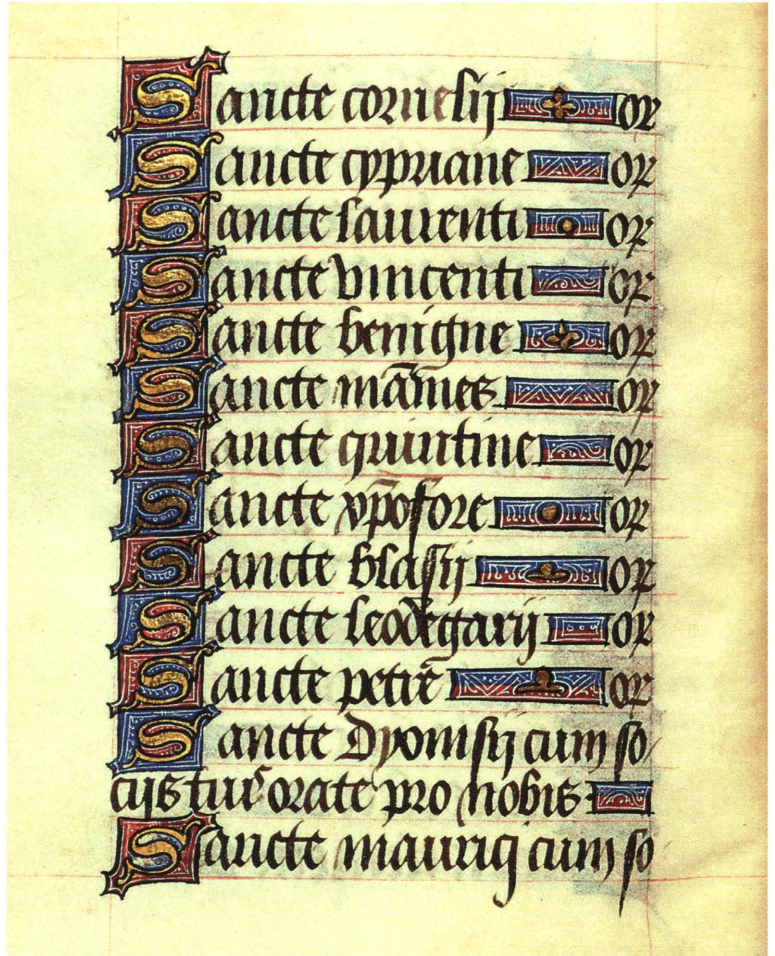 Sancte cornelij or
Sancte cypriane or
Sancte laurenti or
Sancte vincenti or
Sancte benigne or
Sancte mām̄es or
Sancte quintine or
Sancte xp̄ofore or
Sancte blasij or
Sancte leodegarij or
Sancte petre or
Sancte Dyonisij cum so
cijs tuis orate pro nobis
Sancte mauricij cum so